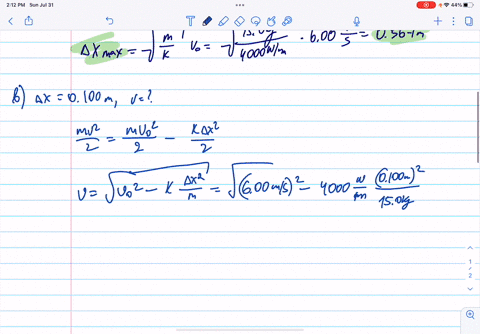 2:12 PM Sun Jul 31
Δx max = √ m/k v₀ = √ 15.0kg / 4000 N/m · 6.00 m/s = 0.367m
b) Δx = 0.100m, v=?
mv²/2 = mv₀²/2 − kΔx²/2
v = √ v₀² − k Δx²/m = √ (6.00 m/s)² − 4000 N/m (0.100m)²/15.0kg
1
2